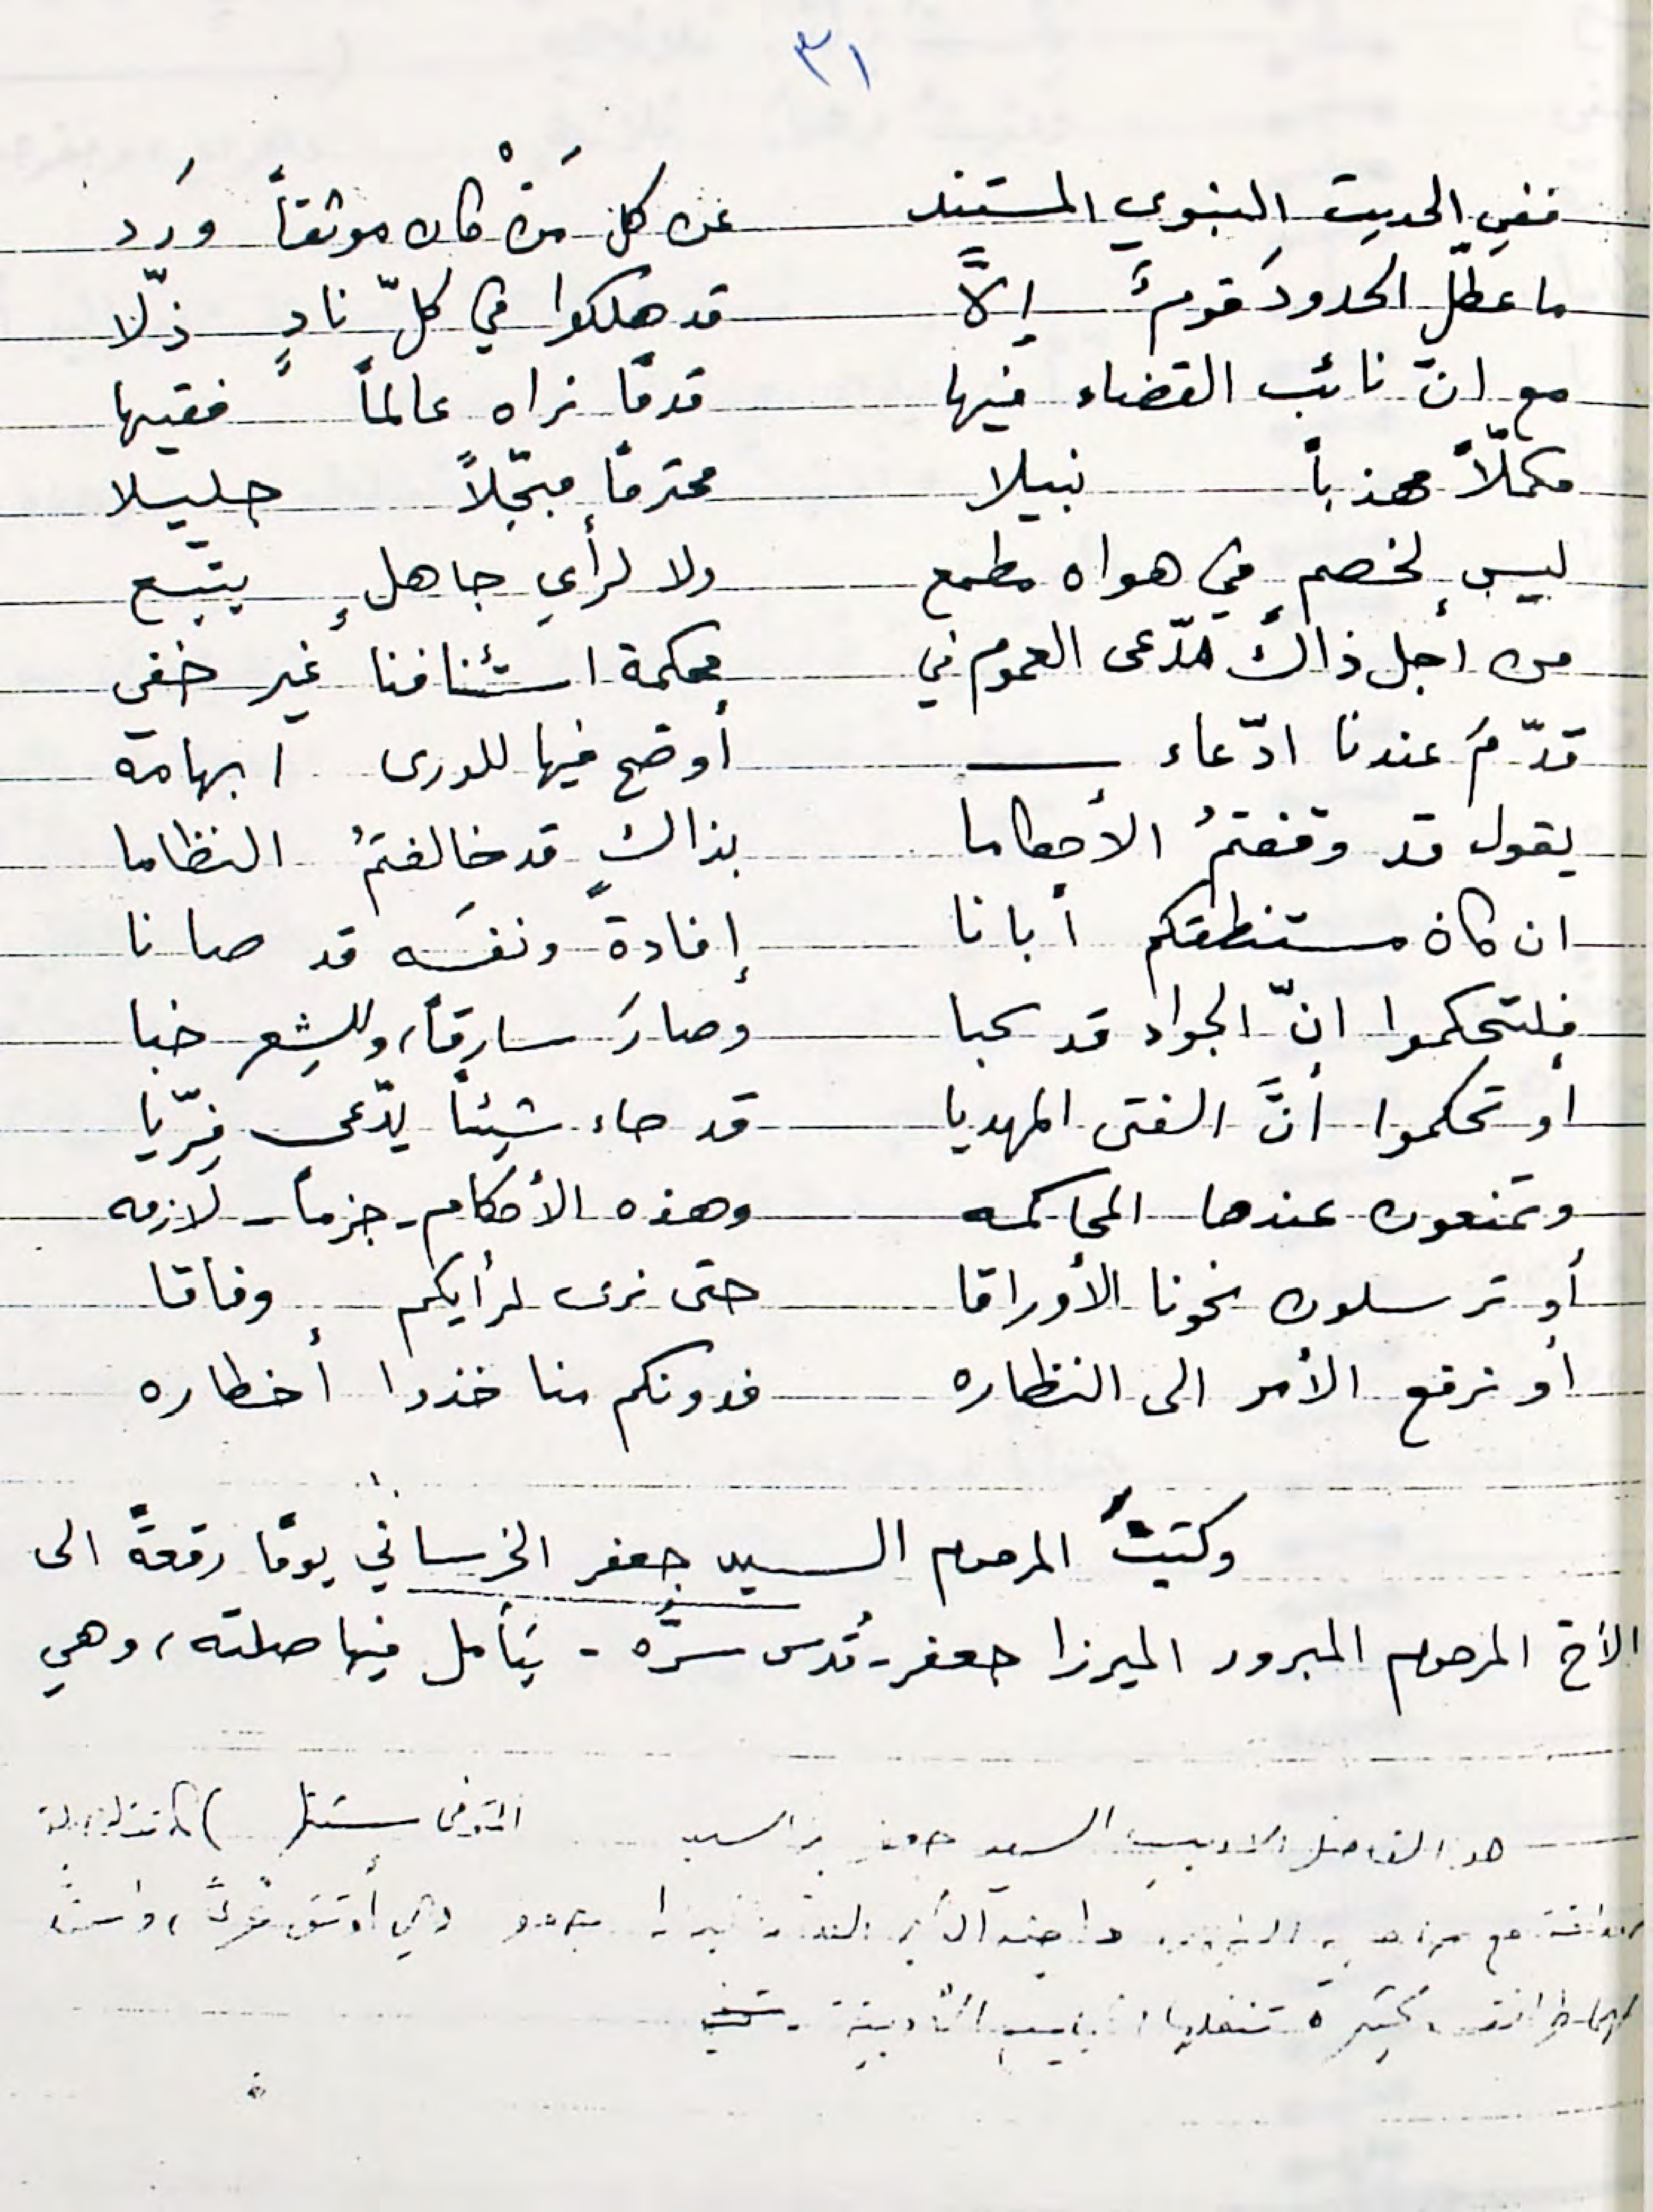 ٣١
ففي الحديث النبوي المستند عن كل مَنْ كان موثقاً وَرَد
ما عطّل الحدودَ قومٌ إلاَّ قد هلكوا في كلّ نادٍ ذلّا
مع انّ نائب القضاء فيها قدمًا نراه عالماً فقيها
مكملّاً مهذباً نبيلا محترمًا مبجّلاً جليلا
ليس لخصمٍ في هواه مطمع ولا لرأي جاهلٍ يتبع
من أجل ذاك مدّعى العموم في محكمة استئنافنا غير خفي
قدّمَ عندنا ادّعاء أوضح فيها للورى ابهامه
يقول قد وقفتمُ الأحكاما بذاك قد خالفتمُ النظاما
ان كان مستنطقكم أبانا إفادة ونفسَه قد صانا
فلتحكموا انّ الجواد قد نحبا وصارَ سارقاً، وللشِعر خبا
أو تحكموا أنَّ الفتى المهديا قد جاء شيئاً يدّعى فِرّيا
وتمنعون عندها المحاكمه وهذه الأحكام - جزماً - لازمه
أو ترسلون نحونا الأوراقا حتى نرى لرأيكم وفاقا
أو نرفع الأمر الى النظاره فدونكم منا خذوا أخطاره
وكتبَ المرحوم السيد جعفر الخرساني يومًا رقعةً الى
الأخ المرحوم المبرور الميرزا جعفر - قُدس سرَّه - يَأمل فيها صلته، وهي
هو الفاضل الاديب السيد جعفر بن السيد المتوفى سنة
مع وهي أوثق
كثيرة تنقلها الأدبية